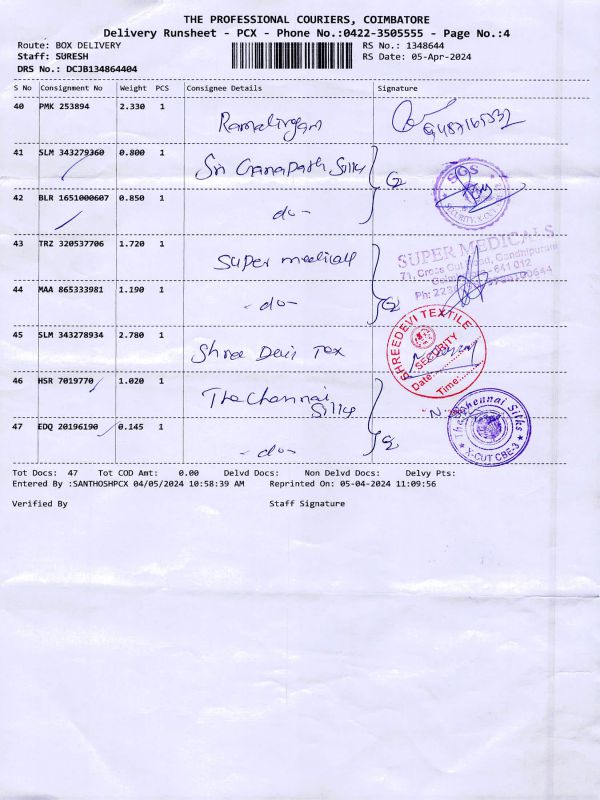 THE PROFESSIONAL COURIERS, COIMBATORE
Delivery Runsheet - PCX - Phone No.:0422-3505555 - Page No.:4
Route: BOX DELIVERY RS No.: 1348644
Staff: SURESH RS Date: 05-Apr-2024
DRS No.: DCJB134864404
S No Consignment No Weight PCS Consignee Details Signature
40 PMK 253894 2.330 1 Ramalingam
41 SLM 343279360 0.800 1 Sri Ganapathi Silks
42 BLR 1651000607 0.850 1 - do -
SGS
SECURITY X-CUT
43 TRZ 320537706 1.720 1 Super medicals
SUPER MEDICALS
71, Cross Cut Road, Gandhipuram
641 012
44 MAA 865333981 1.190 1 - do -
45 SLM 343278934 2.780 1 Shree Devi Tex
SHREEDEVI TEXTILE
SECURITY
Date:
Time:
46 HSR 7019770 1.020 1 The Chennai Silks
47 EDQ 20196190 0.145 1 - do -
The Chennai Silks
X-CUT CBE-3
Tot Docs: 47 Tot COD Amt: 0.00 Delvd Docs: Non Delvd Docs: Delvy Pts:
Entered By :SANTHOSHPCX 04/05/2024 10:58:39 AM Reprinted On: 05-04-2024 11:09:56
Verified By Staff Signature